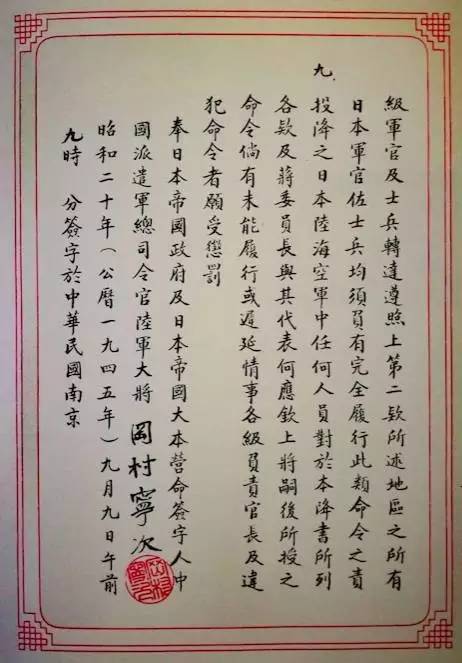 級軍官及士兵轉達遵照上第二欵所述地區之所有
日本軍官佐士兵均須負有完全履行此類命令之責
九、投降之日本陸海空軍中任何人員對於本降書所列
各欵及蔣委員長與其代表何應欽上將嗣後所授之
命令倘有未能履行或遲延情事各級負責官長及違
犯命令者願受懲罰
奉日本帝國政府及日本帝國大本營命簽字人中
國派遣軍總司令官陸軍大將 岡村寧次
昭和二十年(公曆一九四五年)九月九日午前
九時 分簽字於中華民國南京